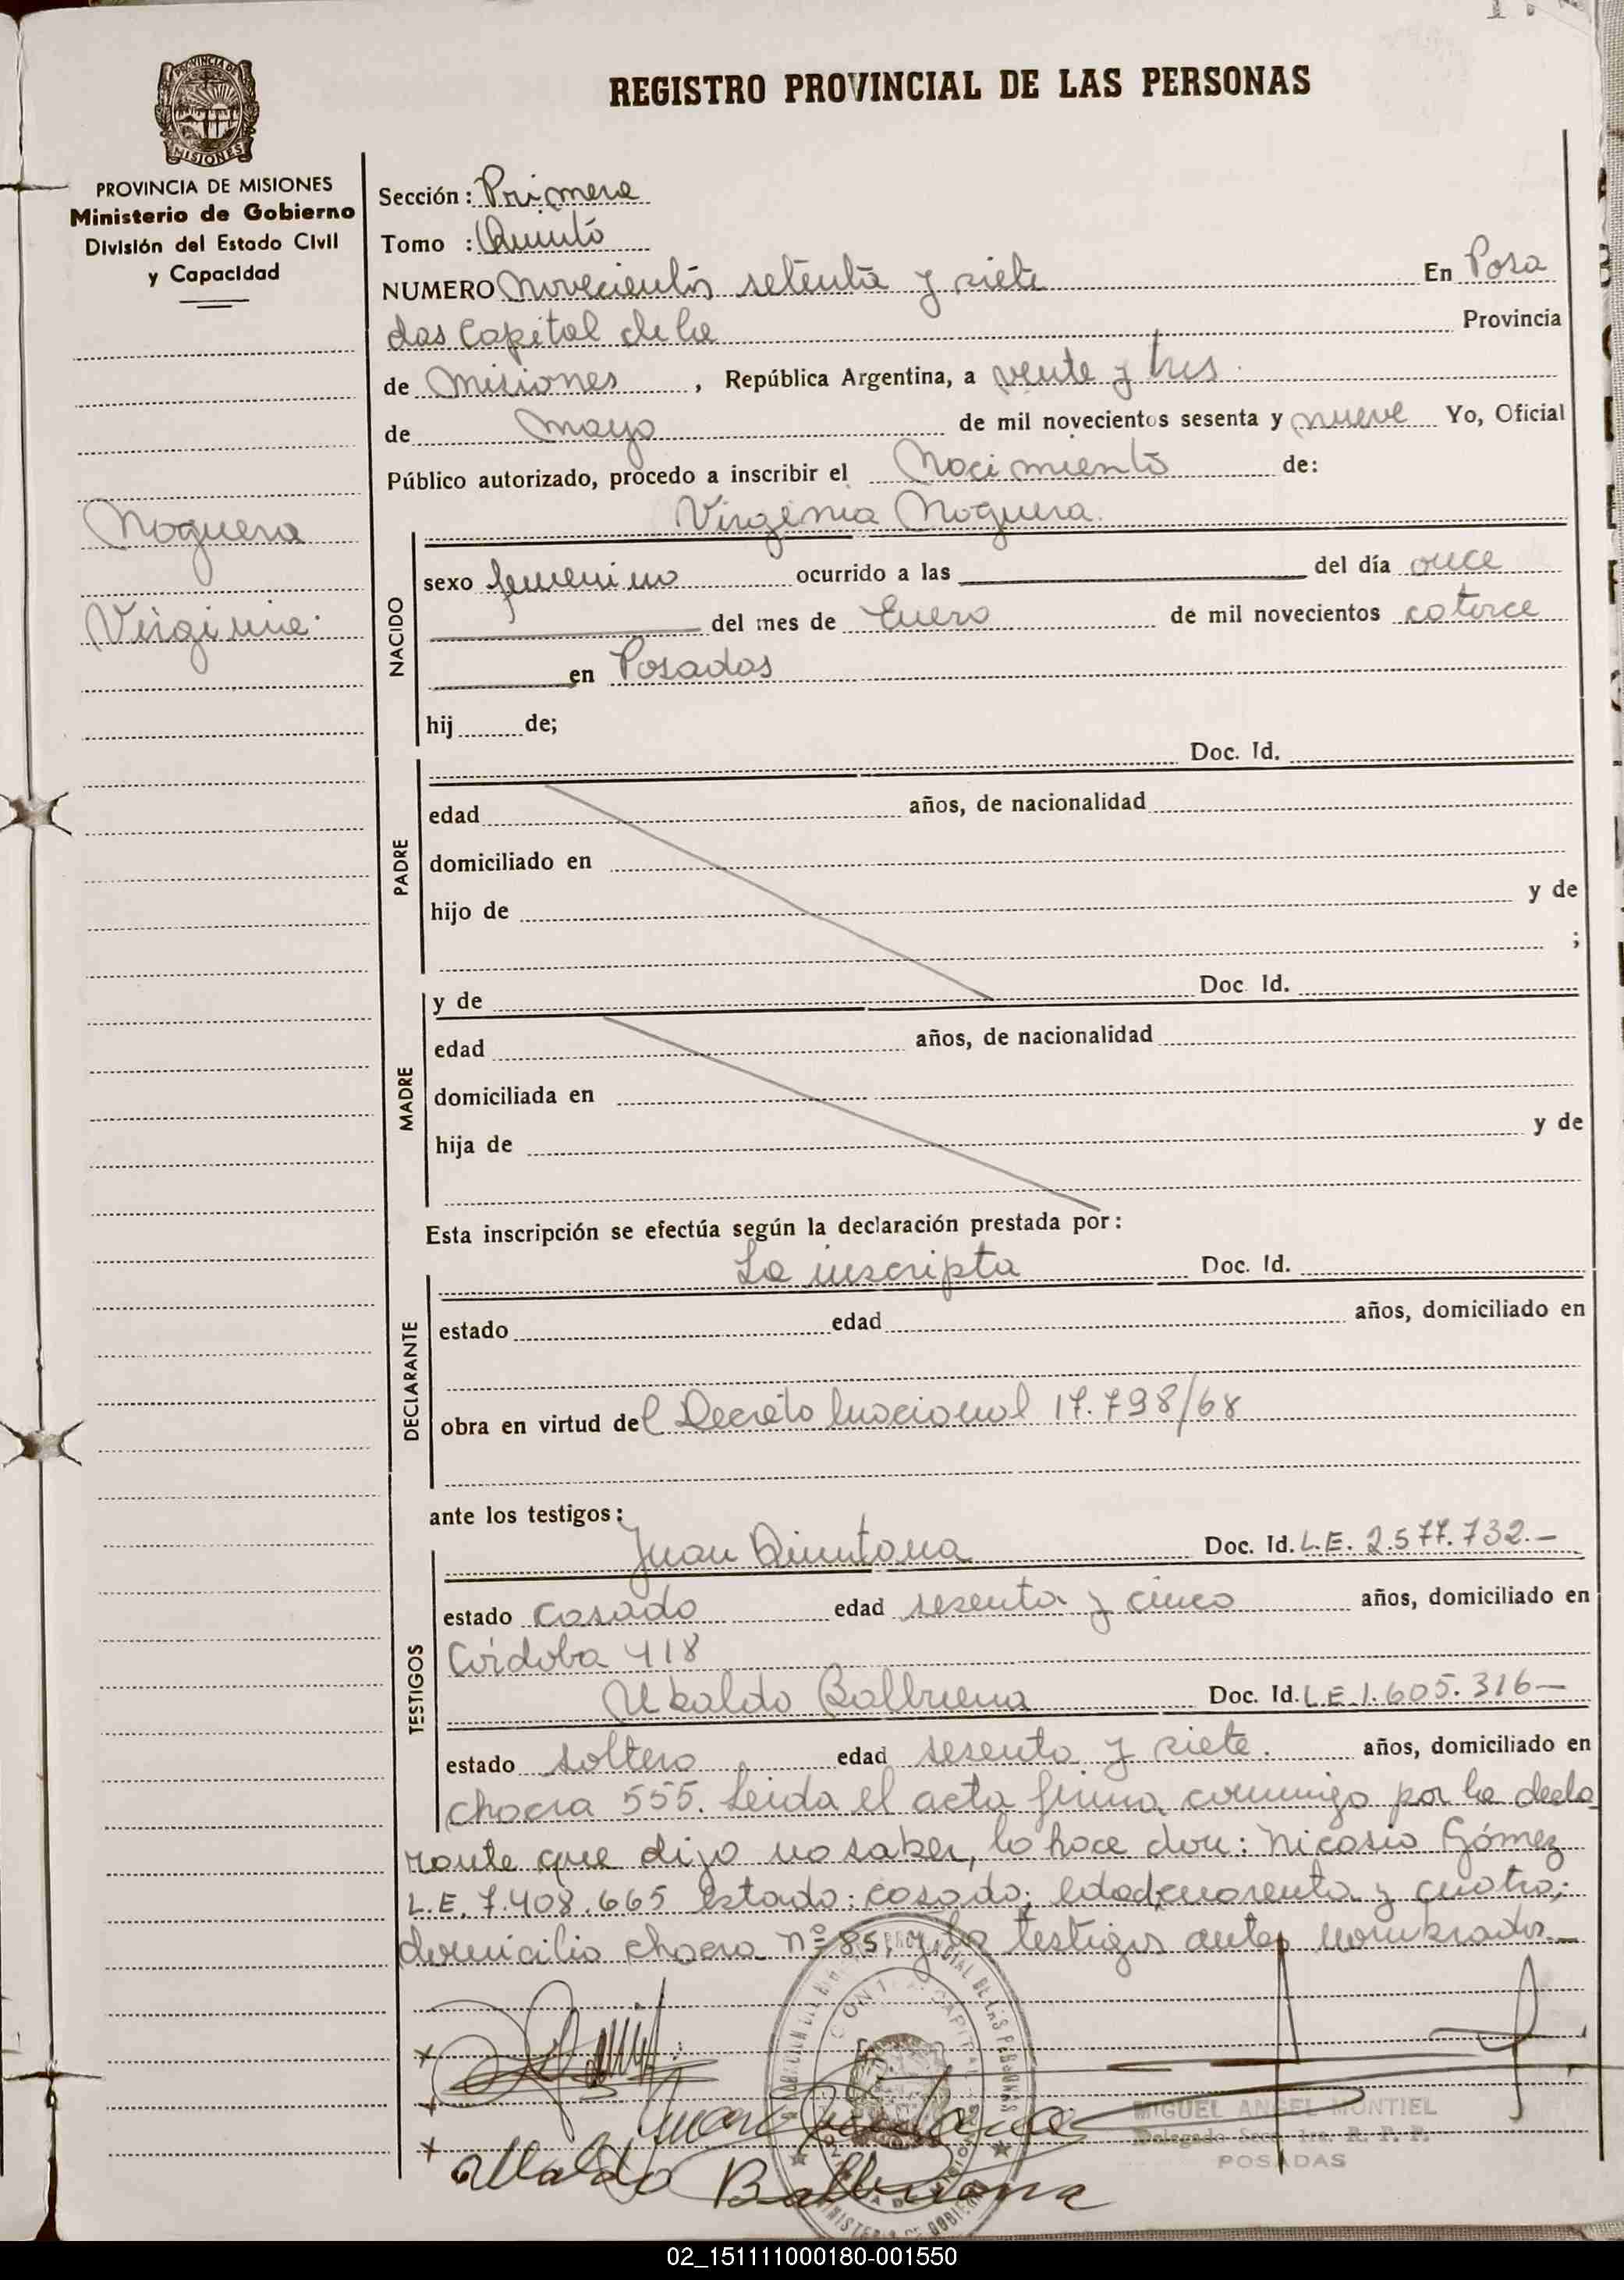 REGISTRO PROVINCIAL DE LAS PERSONAS
PROVINCIA DE
MISIONES
PROVINCIA DE MISIONES
Ministerio de Gobierno
División del Estado Civil
y Capacidad
Noguera
Virginia.
Sección: Primera
Tomo : Quinto
NUMERO Novecientos setenta y siete En Posa
das Capital de la Provincia
de Misiones , República Argentina, a veinte y tres
de Mayo de mil novecientos sesenta y nueve Yo, Oficial
Público autorizado, procedo a inscribir el Nacimiento de:
Virginia Noguera.
NACIDO
sexo femenino ocurrido a las del día once
del mes de Enero de mil novecientos catorce
en Posadas
hij de;
PADRE
Doc. Id.
edad años, de nacionalidad
domiciliado en
hijo de y de
;
MADRE
y de Doc. Id.
edad años, de nacionalidad
domiciliada en
hija de y de
Esta inscripción se efectúa según la declaración prestada por:
DECLARANTE
La inscripta Doc. Id.
estado edad años, domiciliado en
obra en virtud del Decreto Nacional 17.798/68
ante los testigos:
TESTIGOS
Juan Quintana Doc. Id. L.E. 2.577.732.-
estado casado edad sesenta y cinco años, domiciliado en
Córdoba 418
Ubaldo Balbuena Doc. Id. L.E. 1.605.316-
estado soltero edad sesenta y siete. años, domiciliado en
chacra 555. Leida el acta firma conmigo por la decla
rante que dijo no saber, lo hace don: Nicasio Gómez
L.E. 7.408.665 estado: casado; edad: cuarenta y cuatro;
domicilio chacra nº 85, y los testigos antes nombrados.-
Juan Quintana
Ubaldo Balbuena
MIGUEL ANGEL MONTIEL
Delegado Secc. 1ra. R. P. P.
POSADAS
02_151111000180-001550